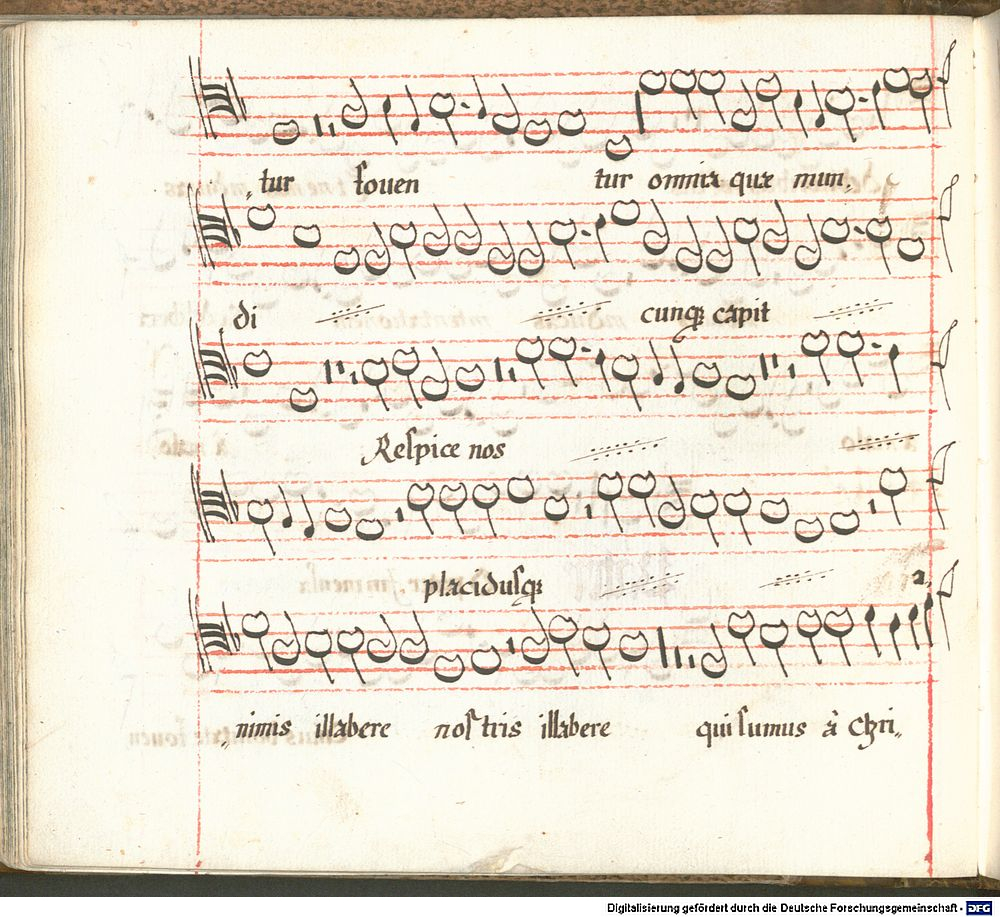 „tur fouen tur omnia quæ mun„
di cunq; capit
Respice nos
placidusq; a„
„nimis illabere nostris illabere qui sumus à Chri„
Digitalisierung gefördert durch die Deutsche Forschungsgemeinschaft - DFG